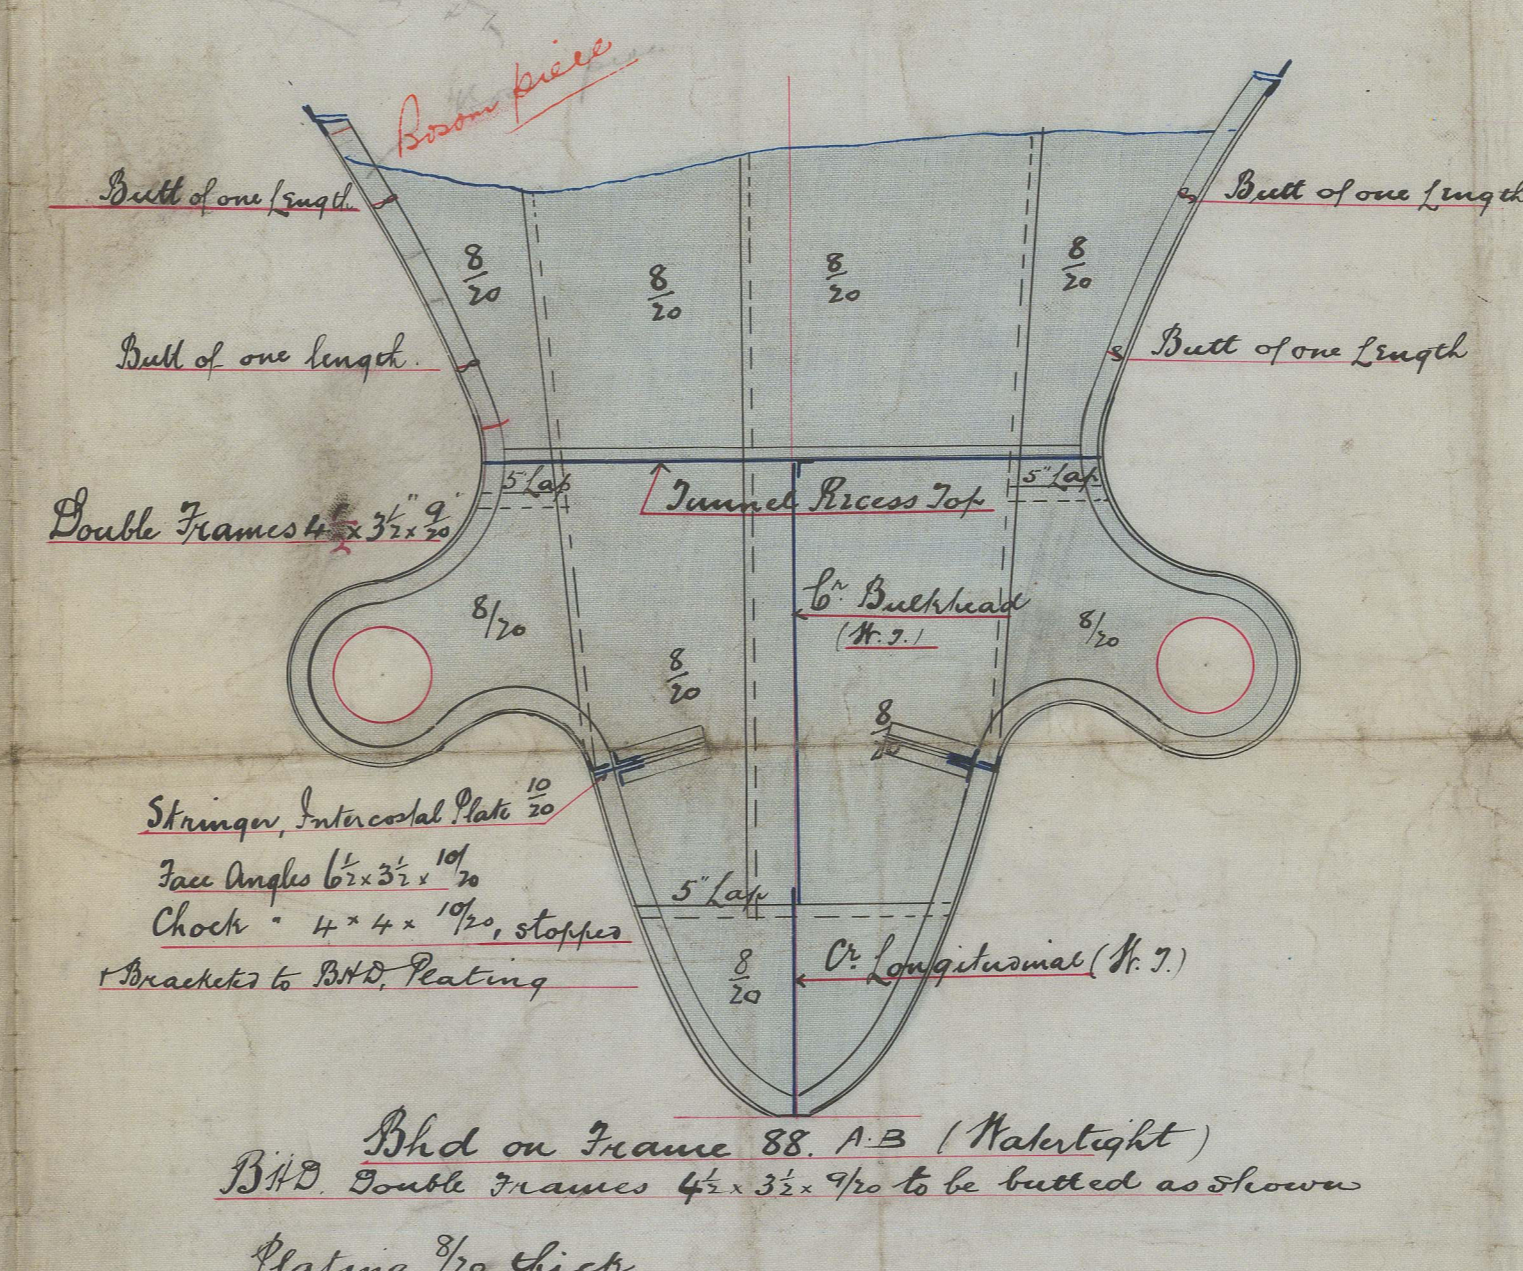 Bosom piece
Butt of one Length
Butt of one Length
8/20
8/20
8/20
8/20
Butt of one length.
Butt of one Length
5" Lap
5" Lap
Tunnel Recess Top
Double Frames 4½ × 3½" × 9/20"
Cr. Bulkhead
(W.T.)
8/20
8/20
8/20
8/20
Stringer, Intercostal Plate 10/20
Face Angles 6½ × 3½ × 10/20
Chock " 4 × 4 × 10/20, stopped
+ Bracketed to BHD, Plating
5" Lap
8/20
Cr. Longitudinal (W.T.)
Bhd on Frame 88. A.B (Watertight)
BHD. Double Frames 4½ × 3½ × 9/20 to be butted as shown
Plating 8/20 thick